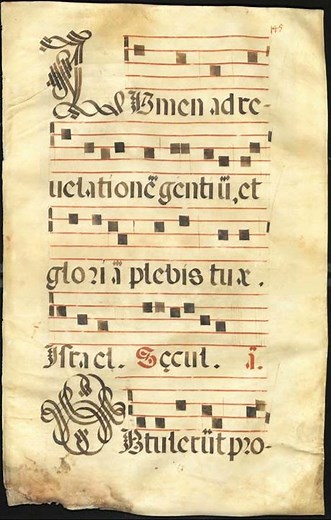 149
LUmen ad re-
uelationẽ gentiũ, et
gloriã plebis tuæ.
Israel. Sęcul. i.
OBtulerũt pro-